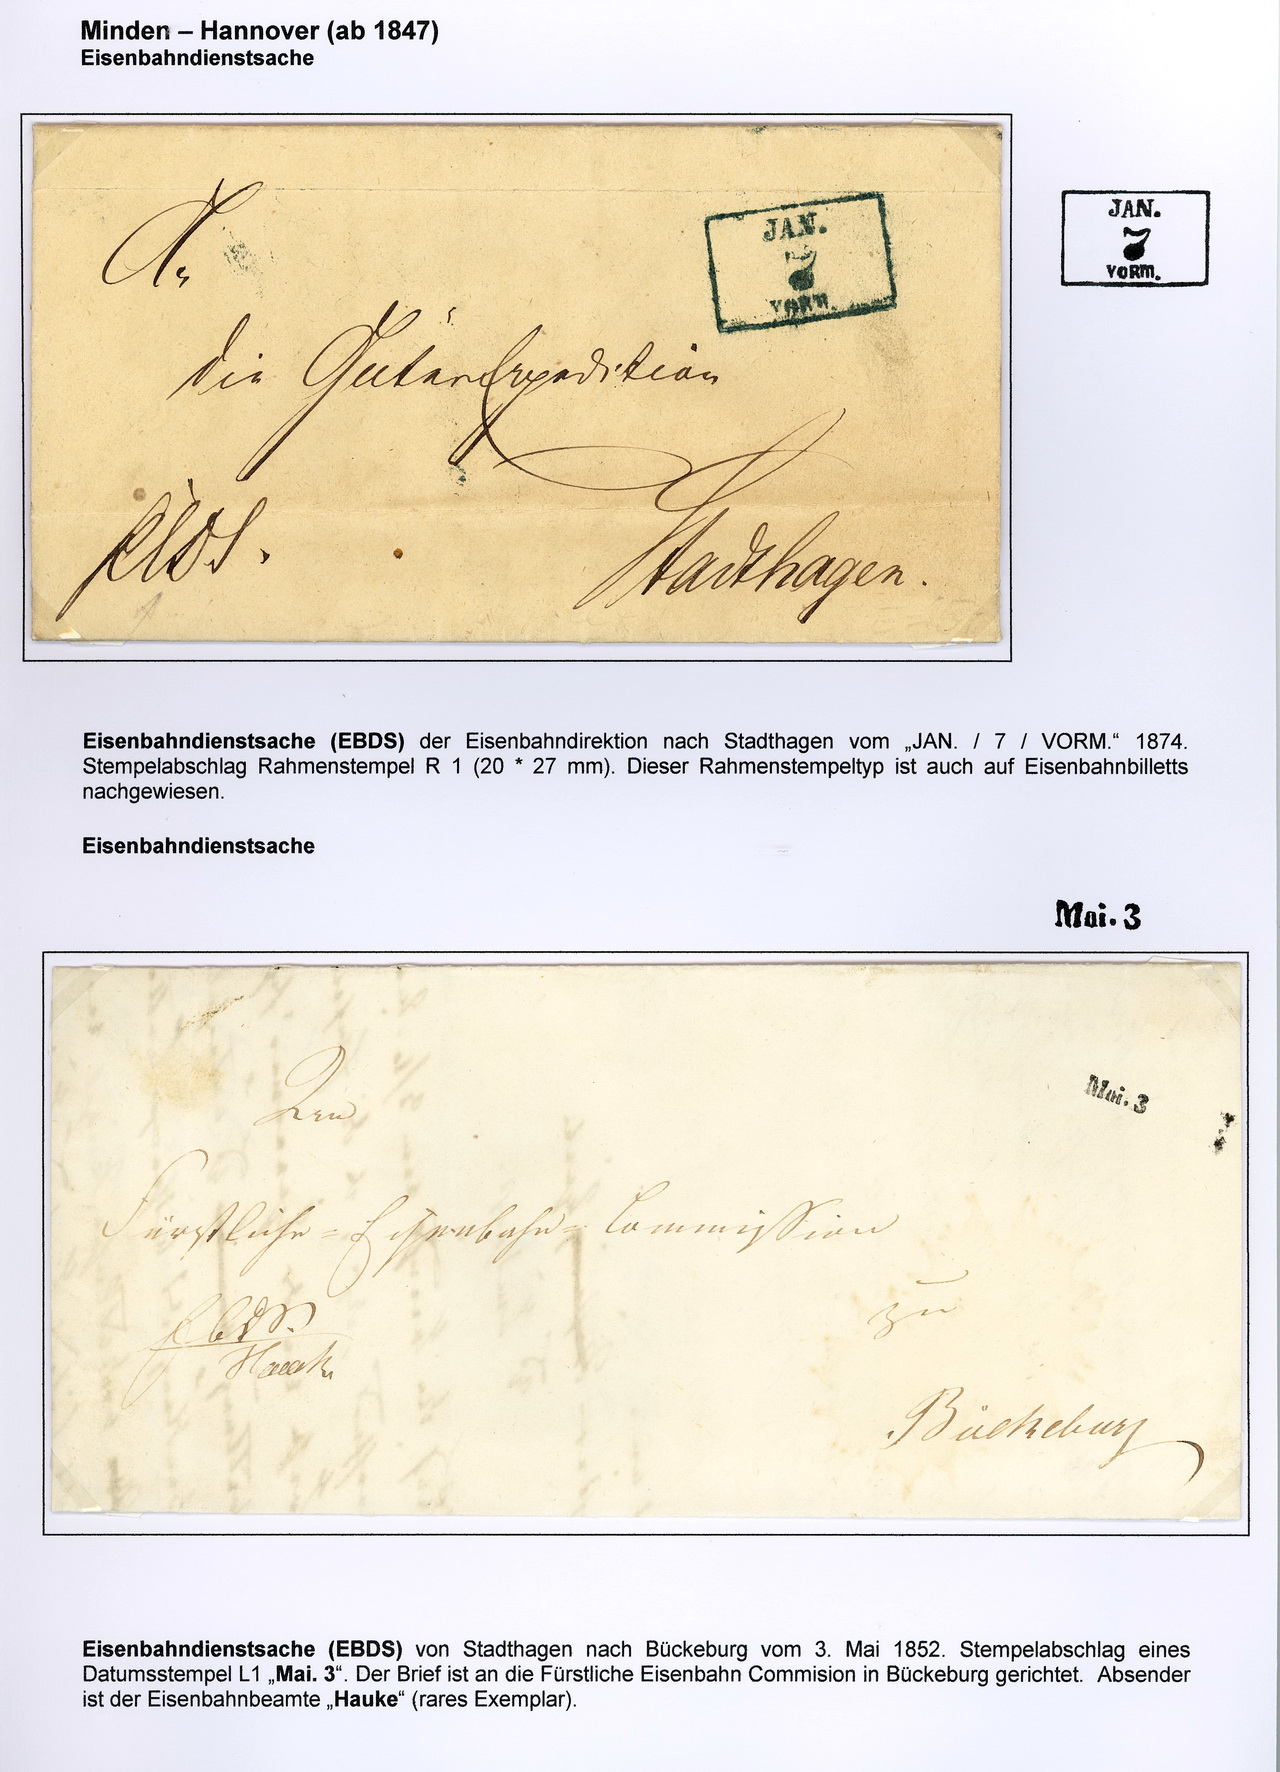 Minden – Hannover (ab 1847)
Eisenbahndienstsache
JAN.
7
VORM.
JAN.
7
VORM.
An
die Güter Expedition
EBDS.
Stadthagen.
Eisenbahndienstsache (EBDS) der Eisenbahndirektion nach Stadthagen vom „JAN. / 7 / VORM.“ 1874.
Stempelabschlag Rahmenstempel R 1 (20 * 27 mm). Dieser Rahmenstempeltyp ist auch auf Eisenbahnbilletts
nachgewiesen.
Eisenbahndienstsache
Mai. 3
Mai. 3
Fürstliche = Eisenbahn = Commission
zu
EBDS.
Hauke
Bückeburg
Eisenbahndienstsache (EBDS) von Stadthagen nach Bückeburg vom 3. Mai 1852. Stempelabschlag eines
Datumsstempel L1 „Mai. 3“. Der Brief ist an die Fürstliche Eisenbahn Commision in Bückeburg gerichtet. Absender
ist der Eisenbahnbeamte „Hauke“ (rares Exemplar).